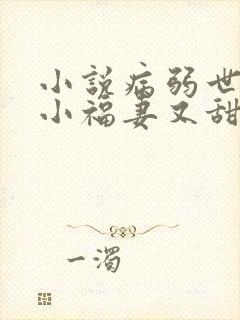 小説病弱世
小福妻又甜
一濁